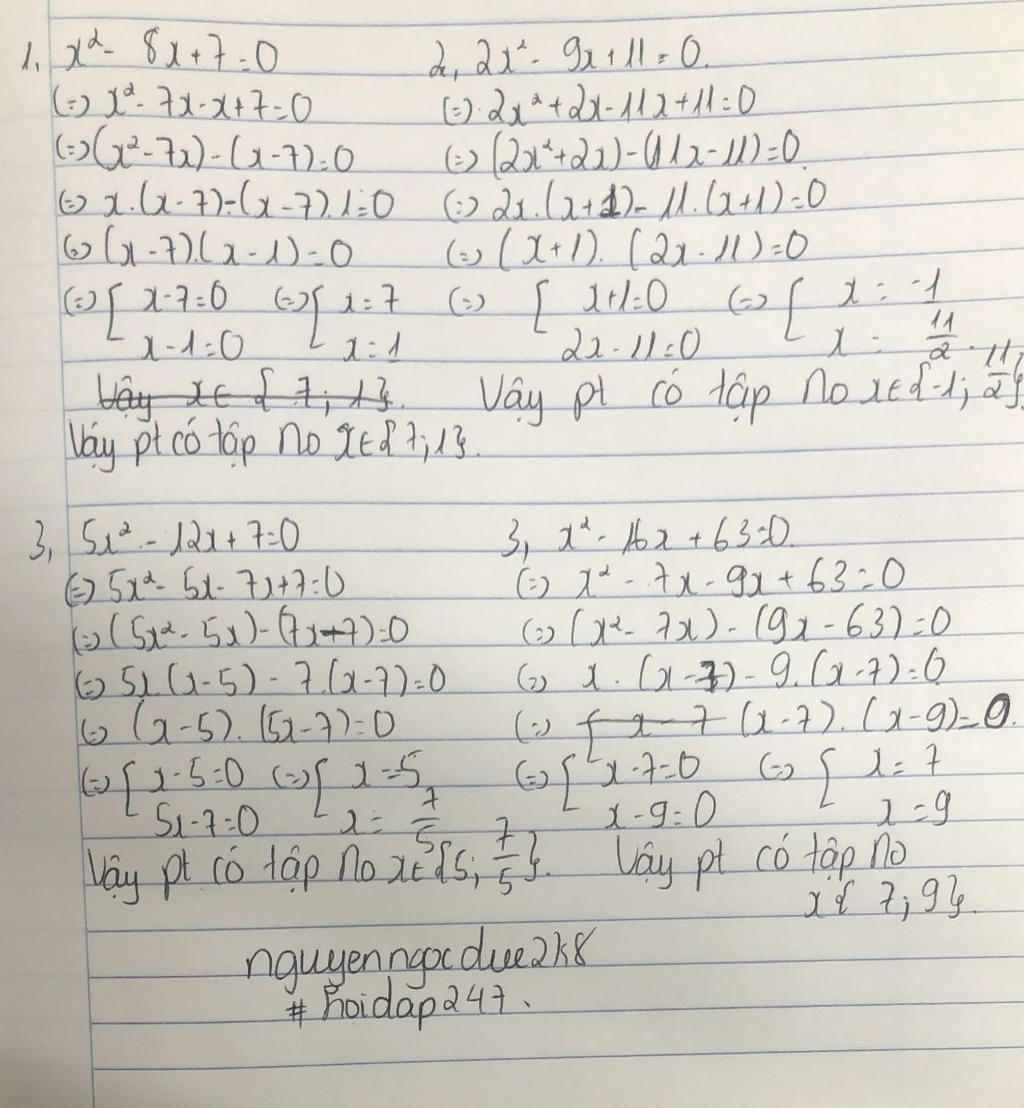 1, x² - 8x + 7 = 0
(=) x² - 7x - x + 7 = 0
(=) (x² - 7x) - (x - 7) = 0
(=) x.(x - 7) - (x - 7).1 = 0
(=) (x - 7)(x - 1) = 0
(=) [ x - 7 = 0 (=) [ x = 7
x - 1 = 0 x = 1
Vậy x ∈ { 7; 1}.
Vậy pt có tập no x ∈ { 7; 1}.
2, 2x² - 9x + 11 = 0.
(=) 2x² + 2x - 11x + 11 = 0
(=) (2x² + 2x) - (11x - 11) = 0
(=) 2x.(x + 1) - 11.(x + 1) = 0
(=) (x + 1). (2x - 11) = 0
(=) [ x + 1 = 0 (=) [ x = -1
2x - 11 = 0 x = 11/2.
Vậy pt có tập no x ∈ {-1; 11/2}
3, 5x² - 12x + 7 = 0
(=) 5x² - 5x - 7x + 7 = 0
(=) (5x² - 5x) - (7x - 7) = 0
(=) 5x.(x - 5) - 7.(x - 7) = 0
(=) (x - 5). (5x - 7) = 0
(=) [ x - 5 = 0 (=) [ x = 5
5x - 7 = 0 x = 7/5
Vậy pt có tập no x ∈ {5; 7/5}.
3, x² - 16x + 63 = 0.
(=) x² - 7x - 9x + 63 = 0
(=) (x² - 7x) - (9x - 63) = 0
(=) x. (x - 7) - 9.(x - 7) = 0
(=) [ x - 7 (x - 7). (x - 9) = 0.
(=) [ x - 7 = 0 (=) [ x = 7
x - 9 = 0 x = 9
Vậy pt có tập no
x { 7; 9}.
nguyenngocduc2k8
# hoidap247.